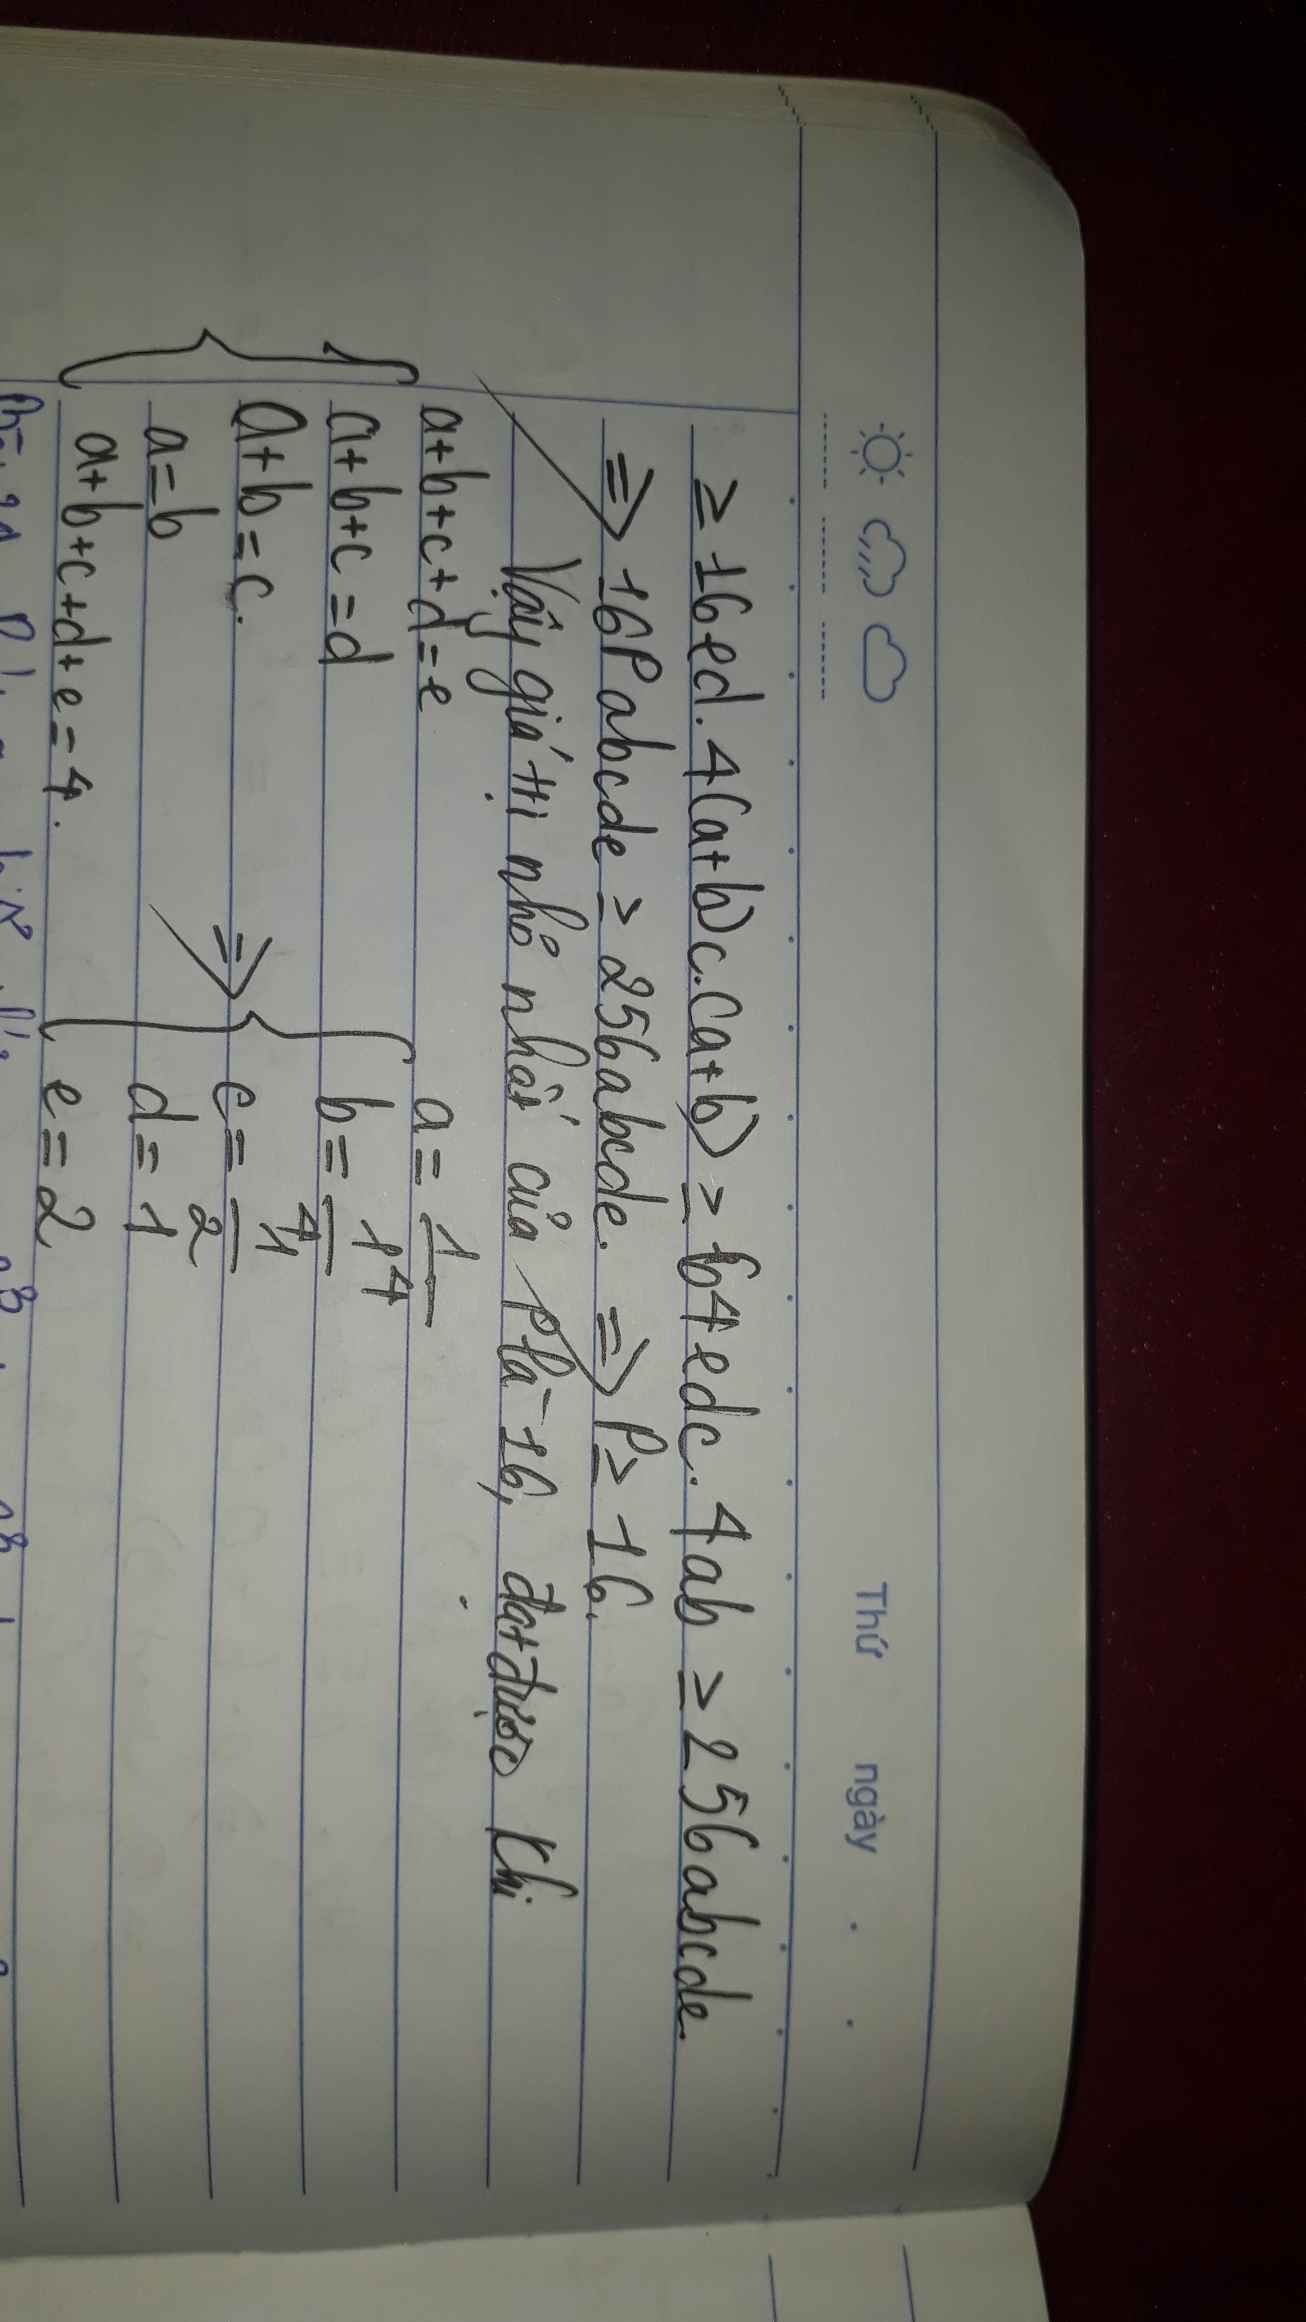 Thứ ngày
≥ 16ed.4(a+b)c.(a+b) ≥ 64edc.4ab ≥ 256abcde.
=> 16Pabcde ≥ 256abcde. => P ≥ 16.
Vậy giá trị nhỏ nhất của P là 16, đạt được khi
a+b+c+d=e a=1/4
a+b+c=d b=1/4
a+b=c. => c=1/2
a=b d=1
a+b+c+d+e=4. e=2